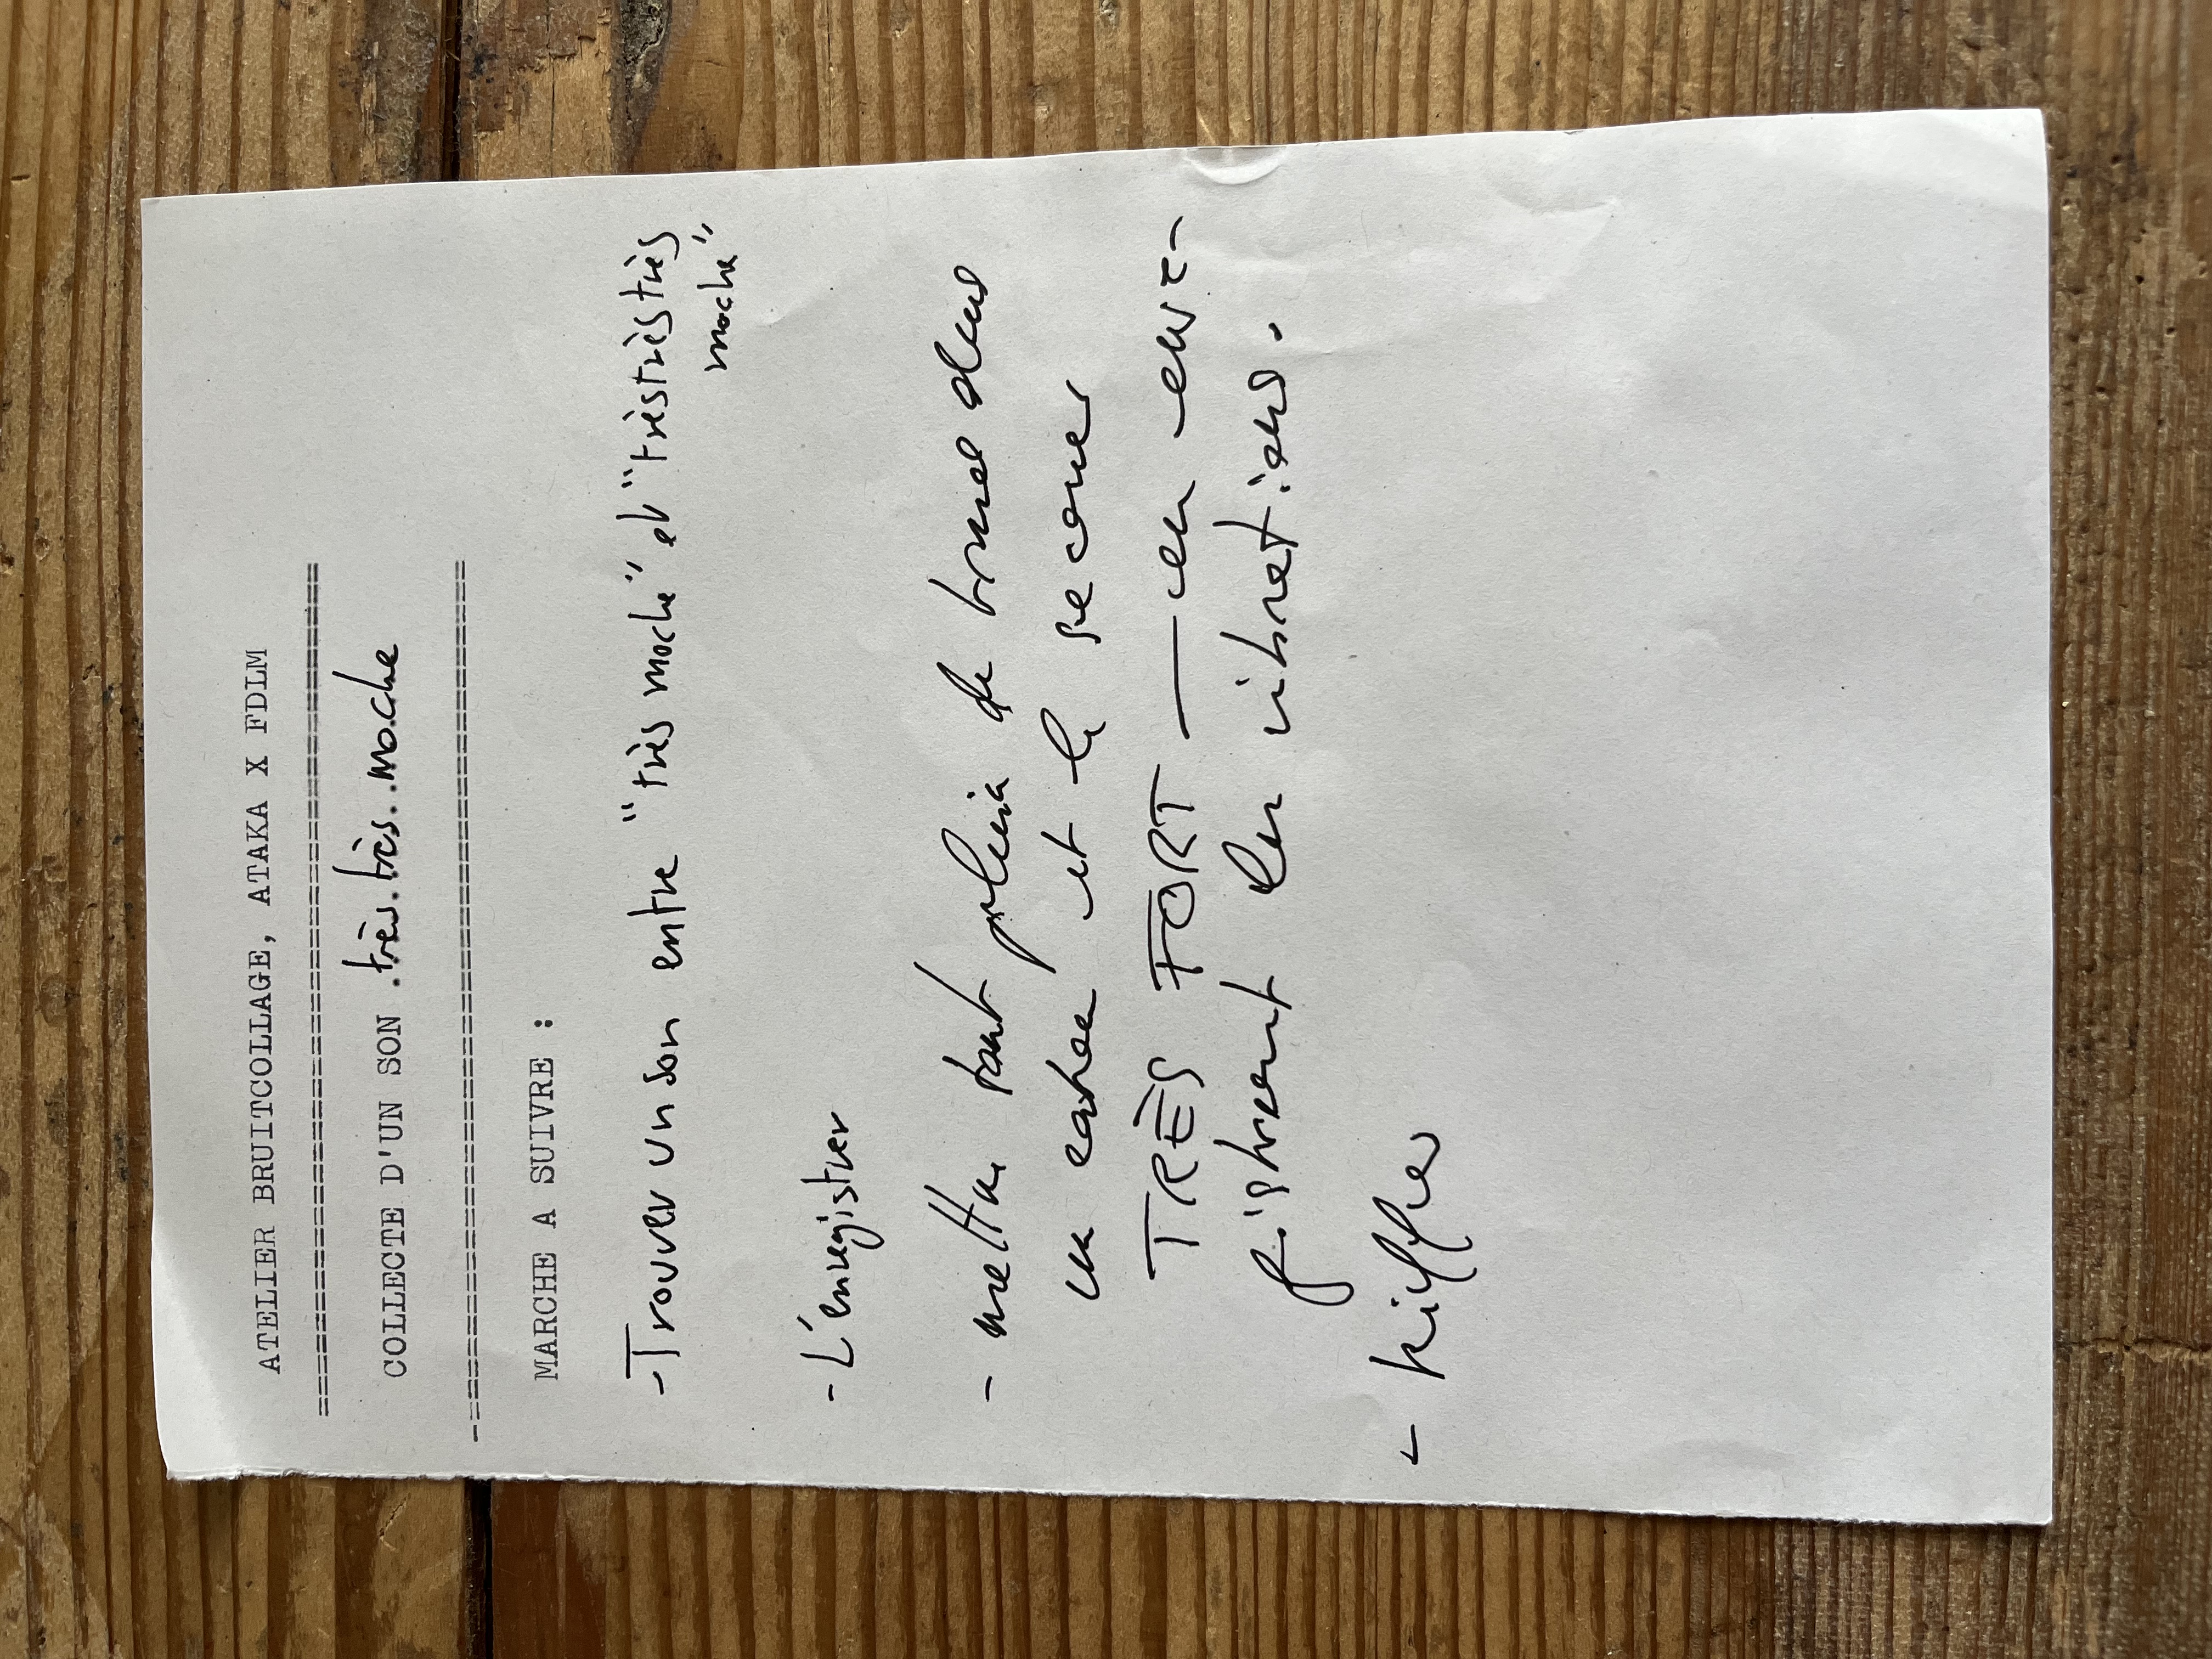 ATELIER BRUITCOLLAGE, ATAKA X FDLM
==================================================
COLLECTE D'UN SON .très.très..moche
-=================================================
MARCHE A SUIVRE :
-Trouver un son entre "très moche" et "trèstrèstrès
moche"
- L'enregistrer
- mettre tout plein de trucs dans
un et le secouer
TRÈS FORT — en enre-
gistrant les vibrations.
- kiffer